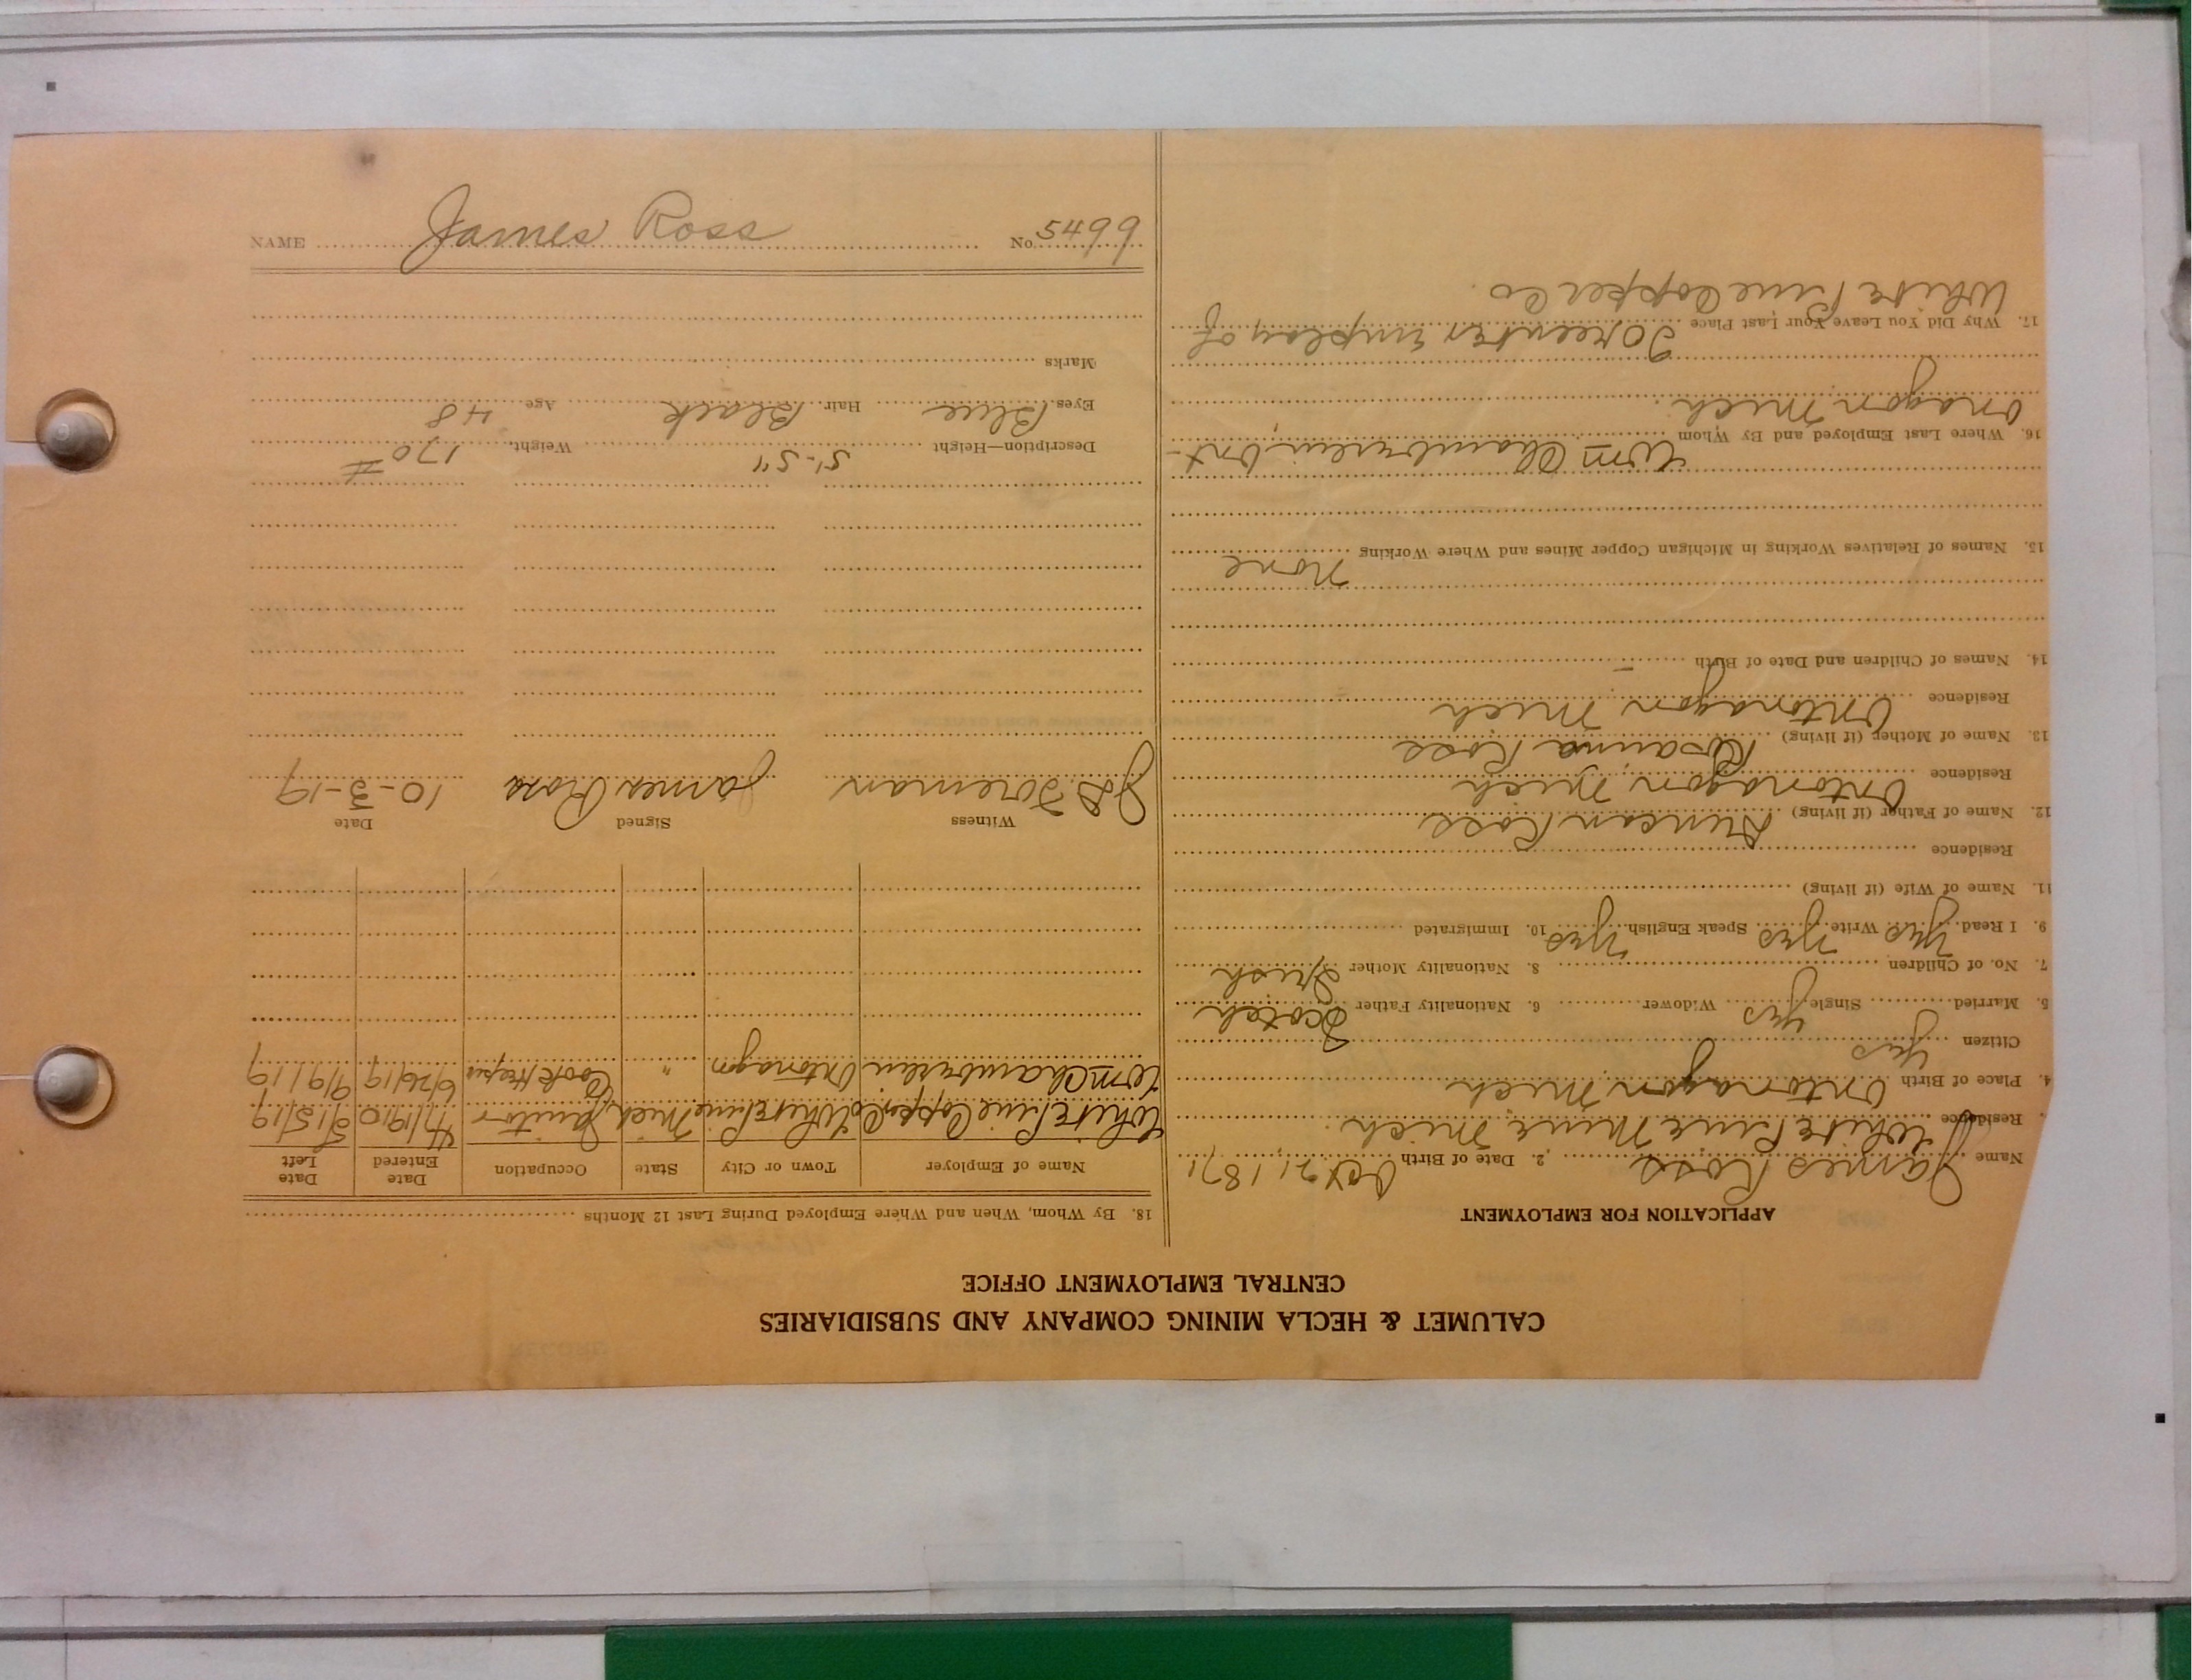 CALUMET & HECLA MINING COMPANY AND SUBSIDIARIES
CENTRAL EMPLOYMENT OFFICE
APPLICATION FOR EMPLOYMENT
Name James Ross 2. Date of Birth Oct 21, 1871
Residence White Pine Mine Mich.
4. Place of Birth Ontonagon Mich
Citizen Yes
5. Married Single yes Widower 6. Nationality Father Scotch
7. No. of Children 8. Nationality Mother Irish
9. I Read yes Write yes Speak English yes 10. Immigrated
11. Name of Wife (if living)
Residence
12. Name of Father (if living) Duncan Ross
Residence Ontonagon, Mich
13. Name of Mother (if living) Rosanna Ross
Residence Ontonagon Mich
14. Names of Children and Date of Birth —
15. Names of Relatives Working in Michigan Copper Mines and Where Working None
16. Where Last Employed and By Whom Wm Chamberlin Ont-
onagon Mich.
17. Why Did You Leave Your Last Place To reenter employ of
White Pine Copper Co.
18. By Whom, When and Where Employed During Last 12 Months
Name of Employer Town or City State Occupation Date Entered Date Left
White Pine Copper Co White Pine Mich Janitor 4/1910 5/15/19
Wm Chamberlin Ontonagon Ontonagon " 6/26/19 9/9/19
Witness Signed Date
J.D. Foreman James Ross 10-3-19
Description—Height 5'-5" Weight 170 #
Eyes Blue Hair Black Age 48
Marks
NAME James Ross No. 5499